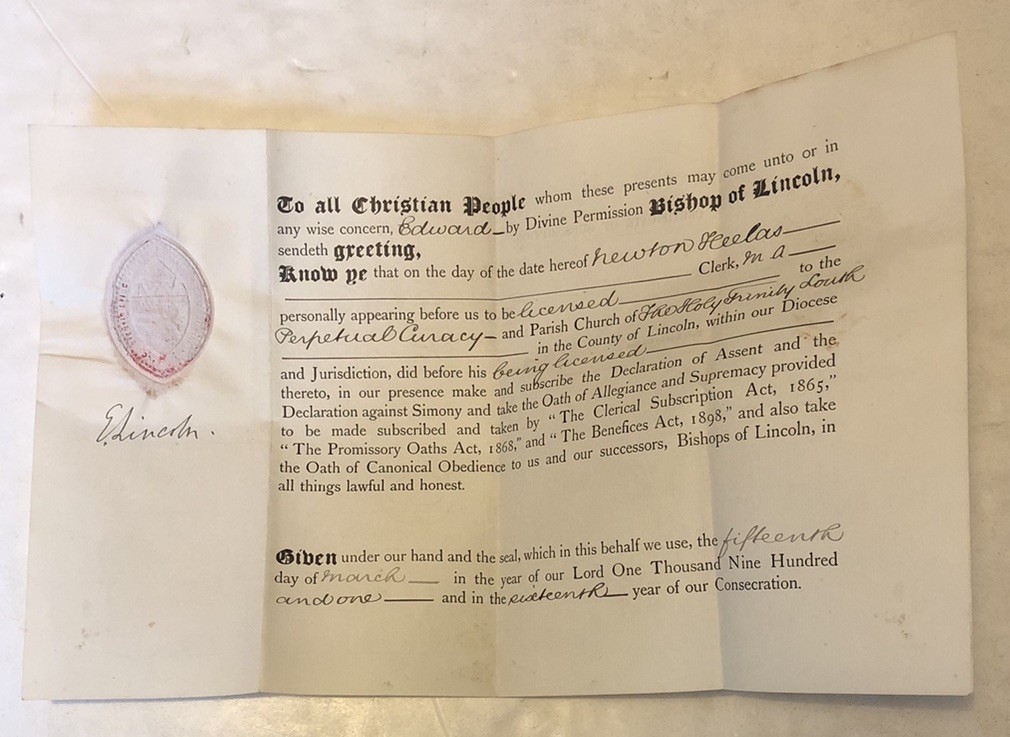 To all Christian People whom these presents may come unto or in
any wise concern, Edward by Divine Permission Bishop of Lincoln,
sendeth greeting,
Know ye that on the day of the date hereof Newton Heelas
Clerk, M A
personally appearing before us to be licensed to the
Perpetual Curacy and Parish Church of The Holy Trinity Louth
in the County of Lincoln, within our Diocese
and Jurisdiction, did before his being licensed
thereto, in our presence make and subscribe the Declaration of Assent and the
Declaration against Simony and take the Oath of Allegiance and Supremacy provided
to be made subscribed and taken by "The Clerical Subscription Act, 1865,"
"The Promissory Oaths Act, 1868," and "The Benefices Act, 1898," and also take
the Oath of Canonical Obedience to us and our successors, Bishops of Lincoln, in
all things lawful and honest.
E. Lincoln.
Given under our hand and the seal, which in this behalf we use, the fifteenth
day of March in the year of our Lord One Thousand Nine Hundred
and one and in the sixteenth year of our Consecration.